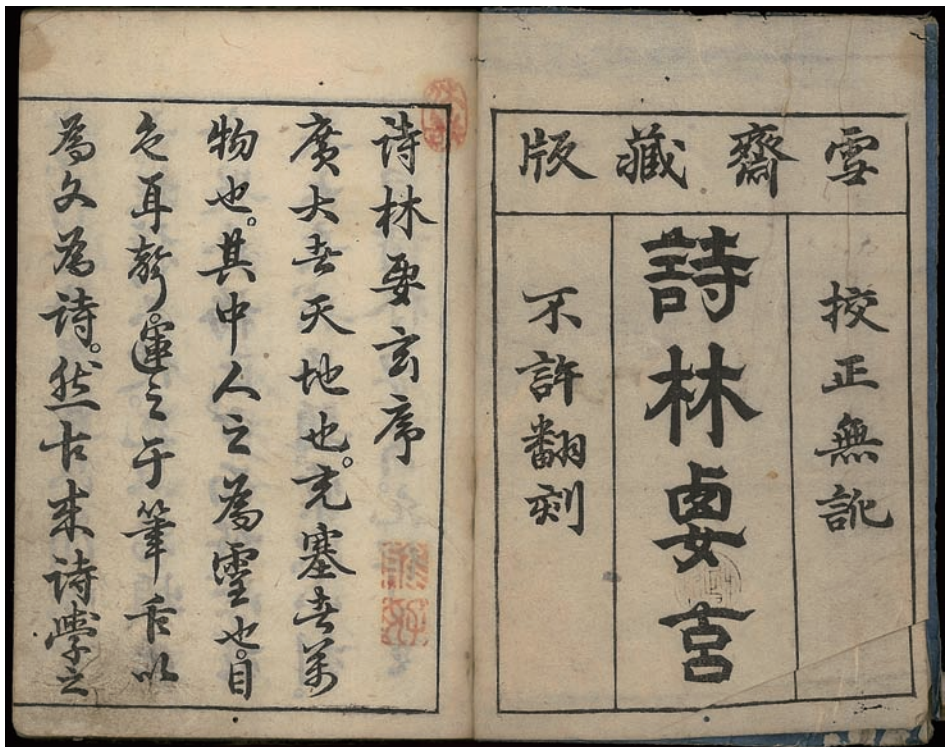 雪齋藏版
挍正無訛
詩林要玄
不許翻刻
詩林要玄序
廣大者天地也。充塞者萬
物也。其中人之為靈也。目
色耳聲。運之于筆舌以
為文為詩。然古来詩學之